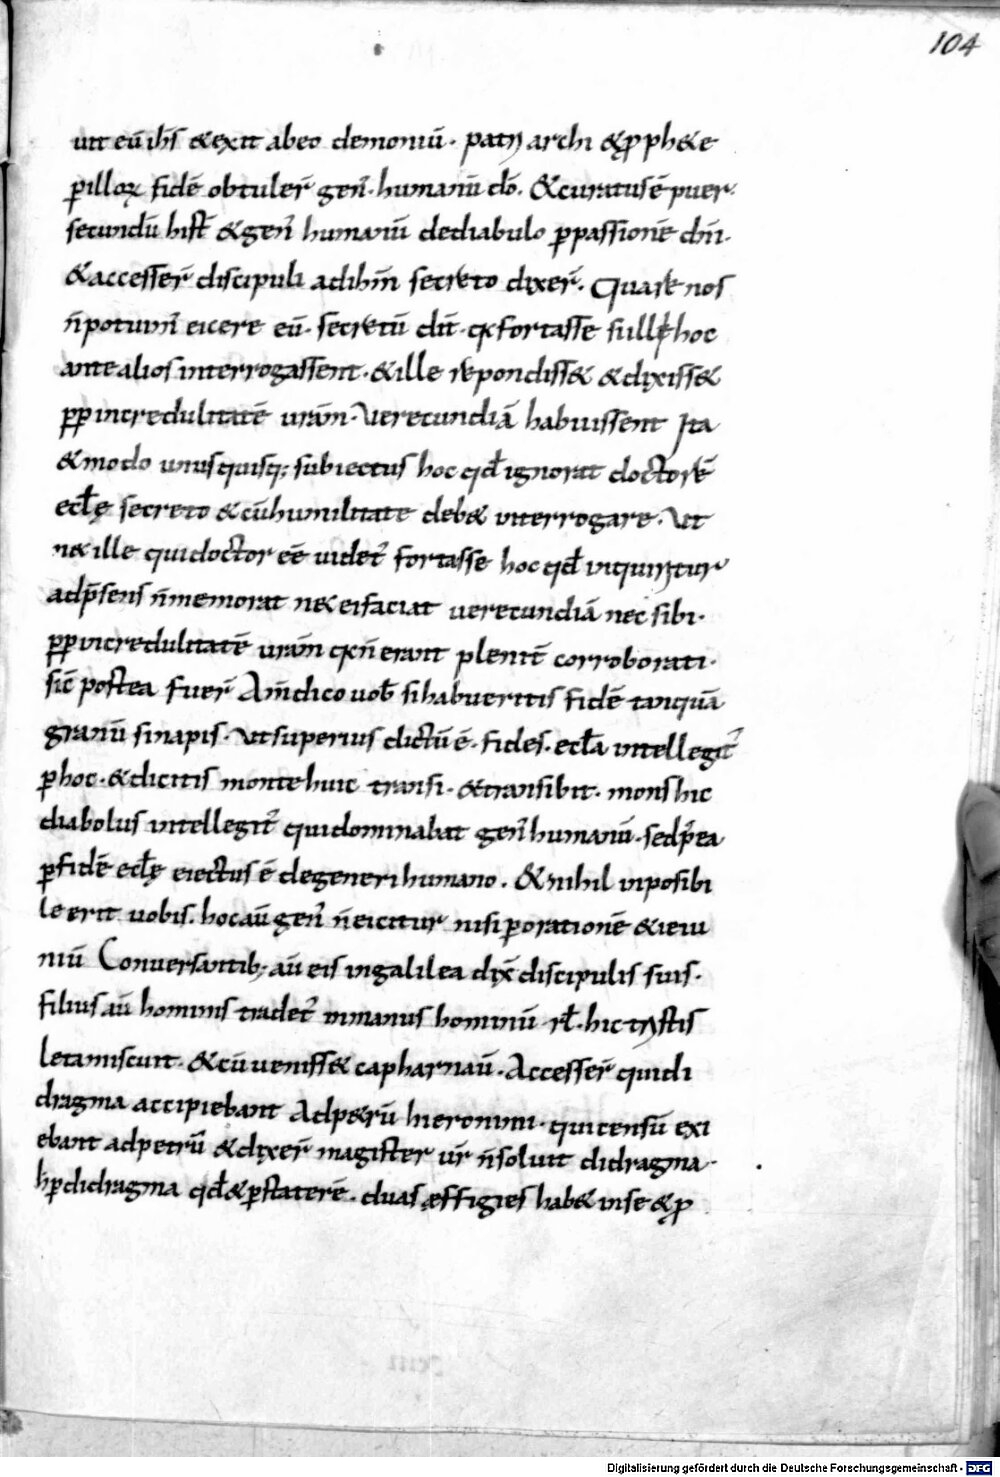 104
uit eū ihs̄ & exiit abeo demoniū · patriarchi & ꝓph&e
ꝑ illoꝝ fidē obtuler̄ gen̄ · humanū dō · & curatus ē puer ·
secundū hist̄ & gen̄ humanū dediabulo ꝑ passionē dn̄i ·
& accesser̄ discipuli adihm̄ secreto dixer̄ · Quare nos
n̄ potuim̄ eicere eū · secretū dn̄t · fortasse si ille hoc
ante alios interrogassent · & ille respondiss& & dixiss&
ꝓp incredulitatē urām · Verecundiā habuissent Ita
& modo unusquisq; subiectus hoc qd̄ ignorat doctorē
eccl̄ę secreto & cū humilitate deb& interrogare · Ut
nec ille quidoctor eē uidet̄ fortasse hoc qd̄ inquiritur
adp̄sens n̄ memorat nec eifaciat uerecundiā nec sibi ·
ꝓp incredulitatē urām n̄ erant plenit̄ corroborati ·
sic̄ postea fuer̄ Am̄ dico uob̄ si habueritis fidē tanquā
granū sinapis · Ut superius dictū ē · fides · eccl̄a intellegit̄
ꝑ hoc · & dicitis monte huic transi · & transibit · mons hic
diabolus intellegit̄ quidominabat gen̄ humanū · sed p̄ea
ꝑ fidē eccl̄ę eiectus ē degeneri humano · & nihil inposibi
le erit uobis · hoc aū gen̄ n̄ eicitur nisi ꝑ orationē & ieiu
niū Conuersantib; aū eis ingalilea dix̄ discipulis suis ·
filius aū hominis tradet̄ inmanus hominū · rl̄ · hic tristis
leta miscuit · & cū ueniss& capharnaū · Accesser̄ qui di
dragma accipiebant Adp&rū hieronim · qui censū exi
ebant adpetrū & dixer̄ magister ur̄ n̄ soluit didragma ·
didragma qd̄ & ꝑ staterē · duas effigies hab& inse & ꝓ
Digitalisierung gefördert durch die Deutsche Forschungsgemeinschaft - DFG